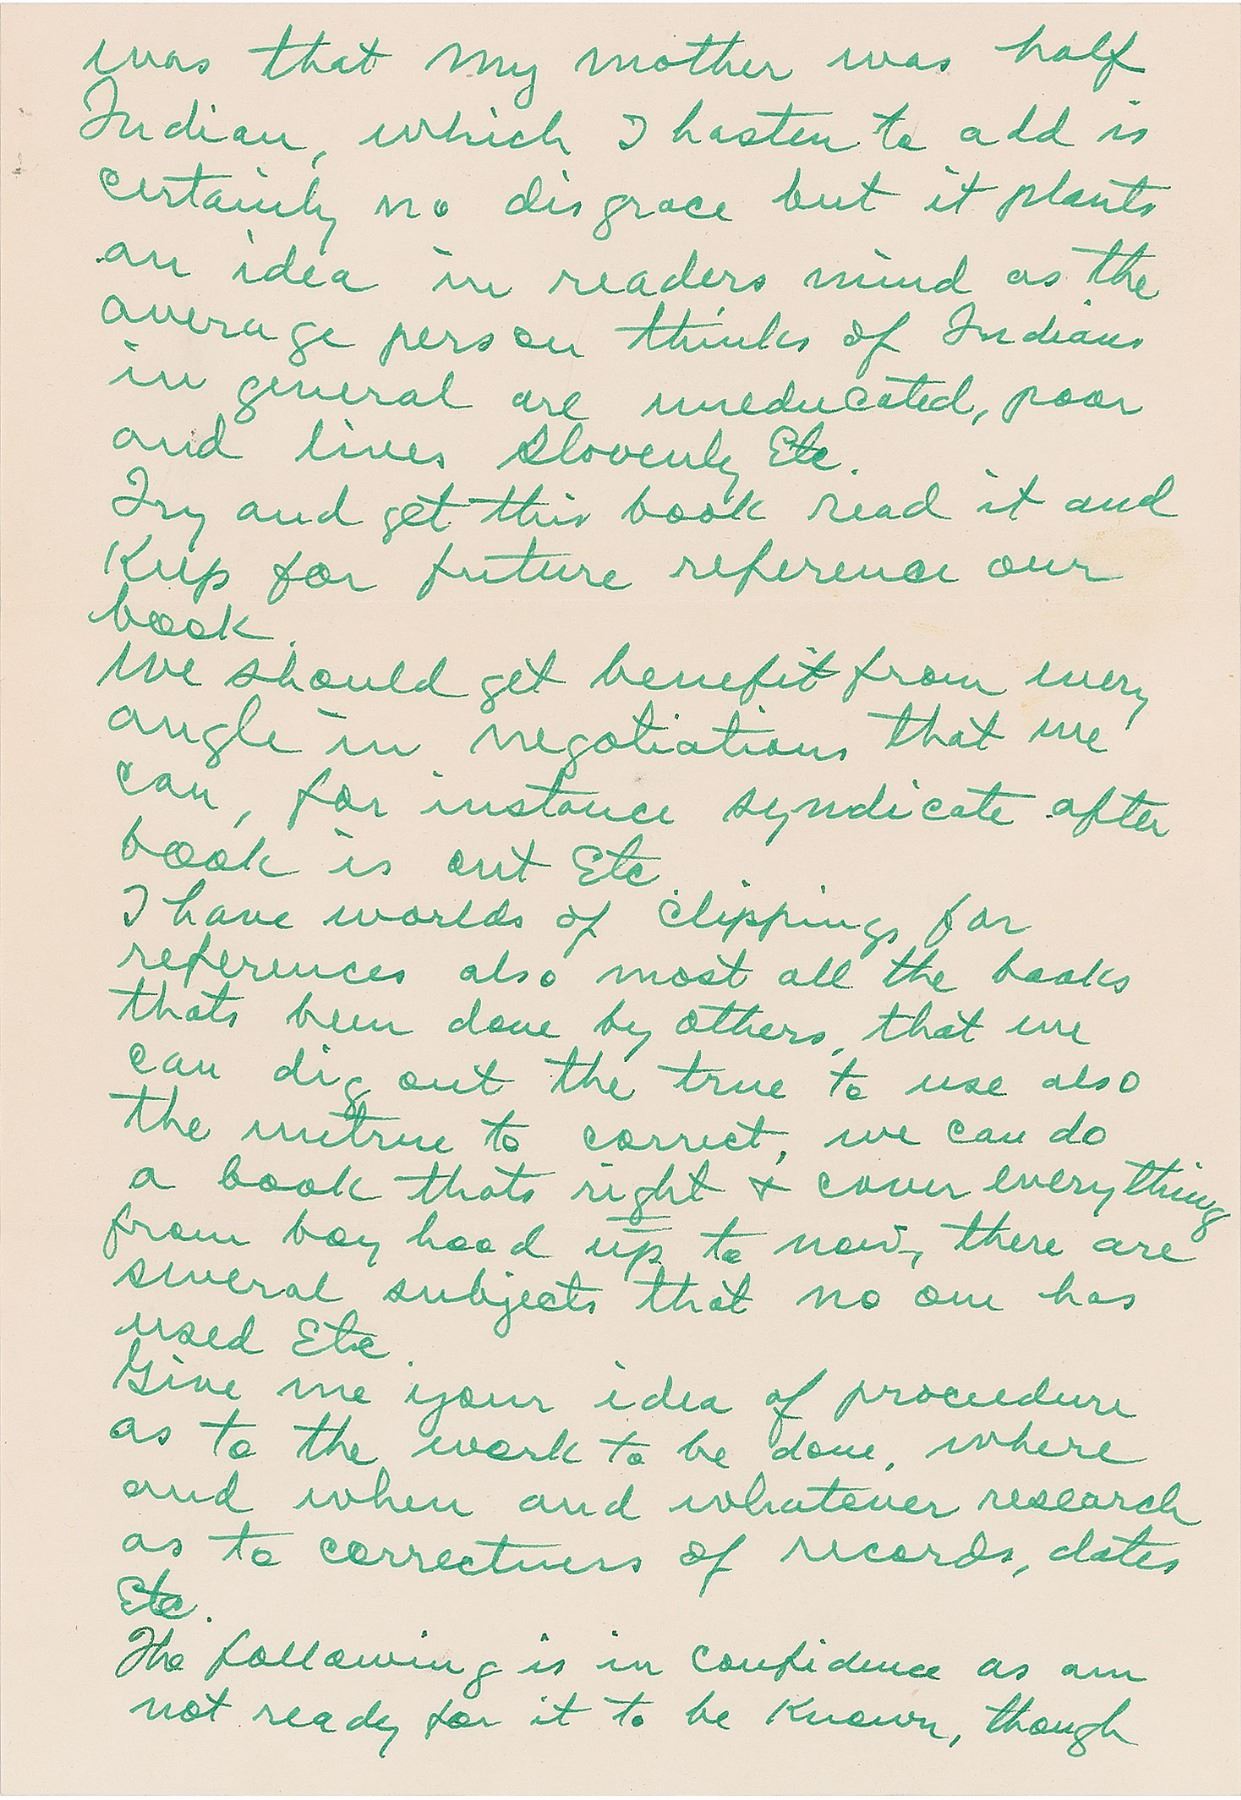 was that my mother was half
Indian, which I hasten to add is
certainly no disgrace but it plants
an idea in readers mind as the
average person thinks of Indians
in general are uneducated, poor
and lives slovenly Etc.
Try and get this book read it and
Keep for future reference our
book.
We should get benefit from every
angle in negotiations that we
can, for instance syndicate after
book is out Etc.
I have worlds of clippings for
references also most all the books
thats been done by others, that we
can dig out the true to use also
the untrue to correct, we can do
a book thats right & cover everything
from boy hood up to now, there are
several subjects that no one has
used Etc.
Give me your idea of proceedure
as to the work to be done, where
and when and whatever research
as to correctness of records, dates
Etc.
The following is in confidence as am
not ready for it to be Known, though